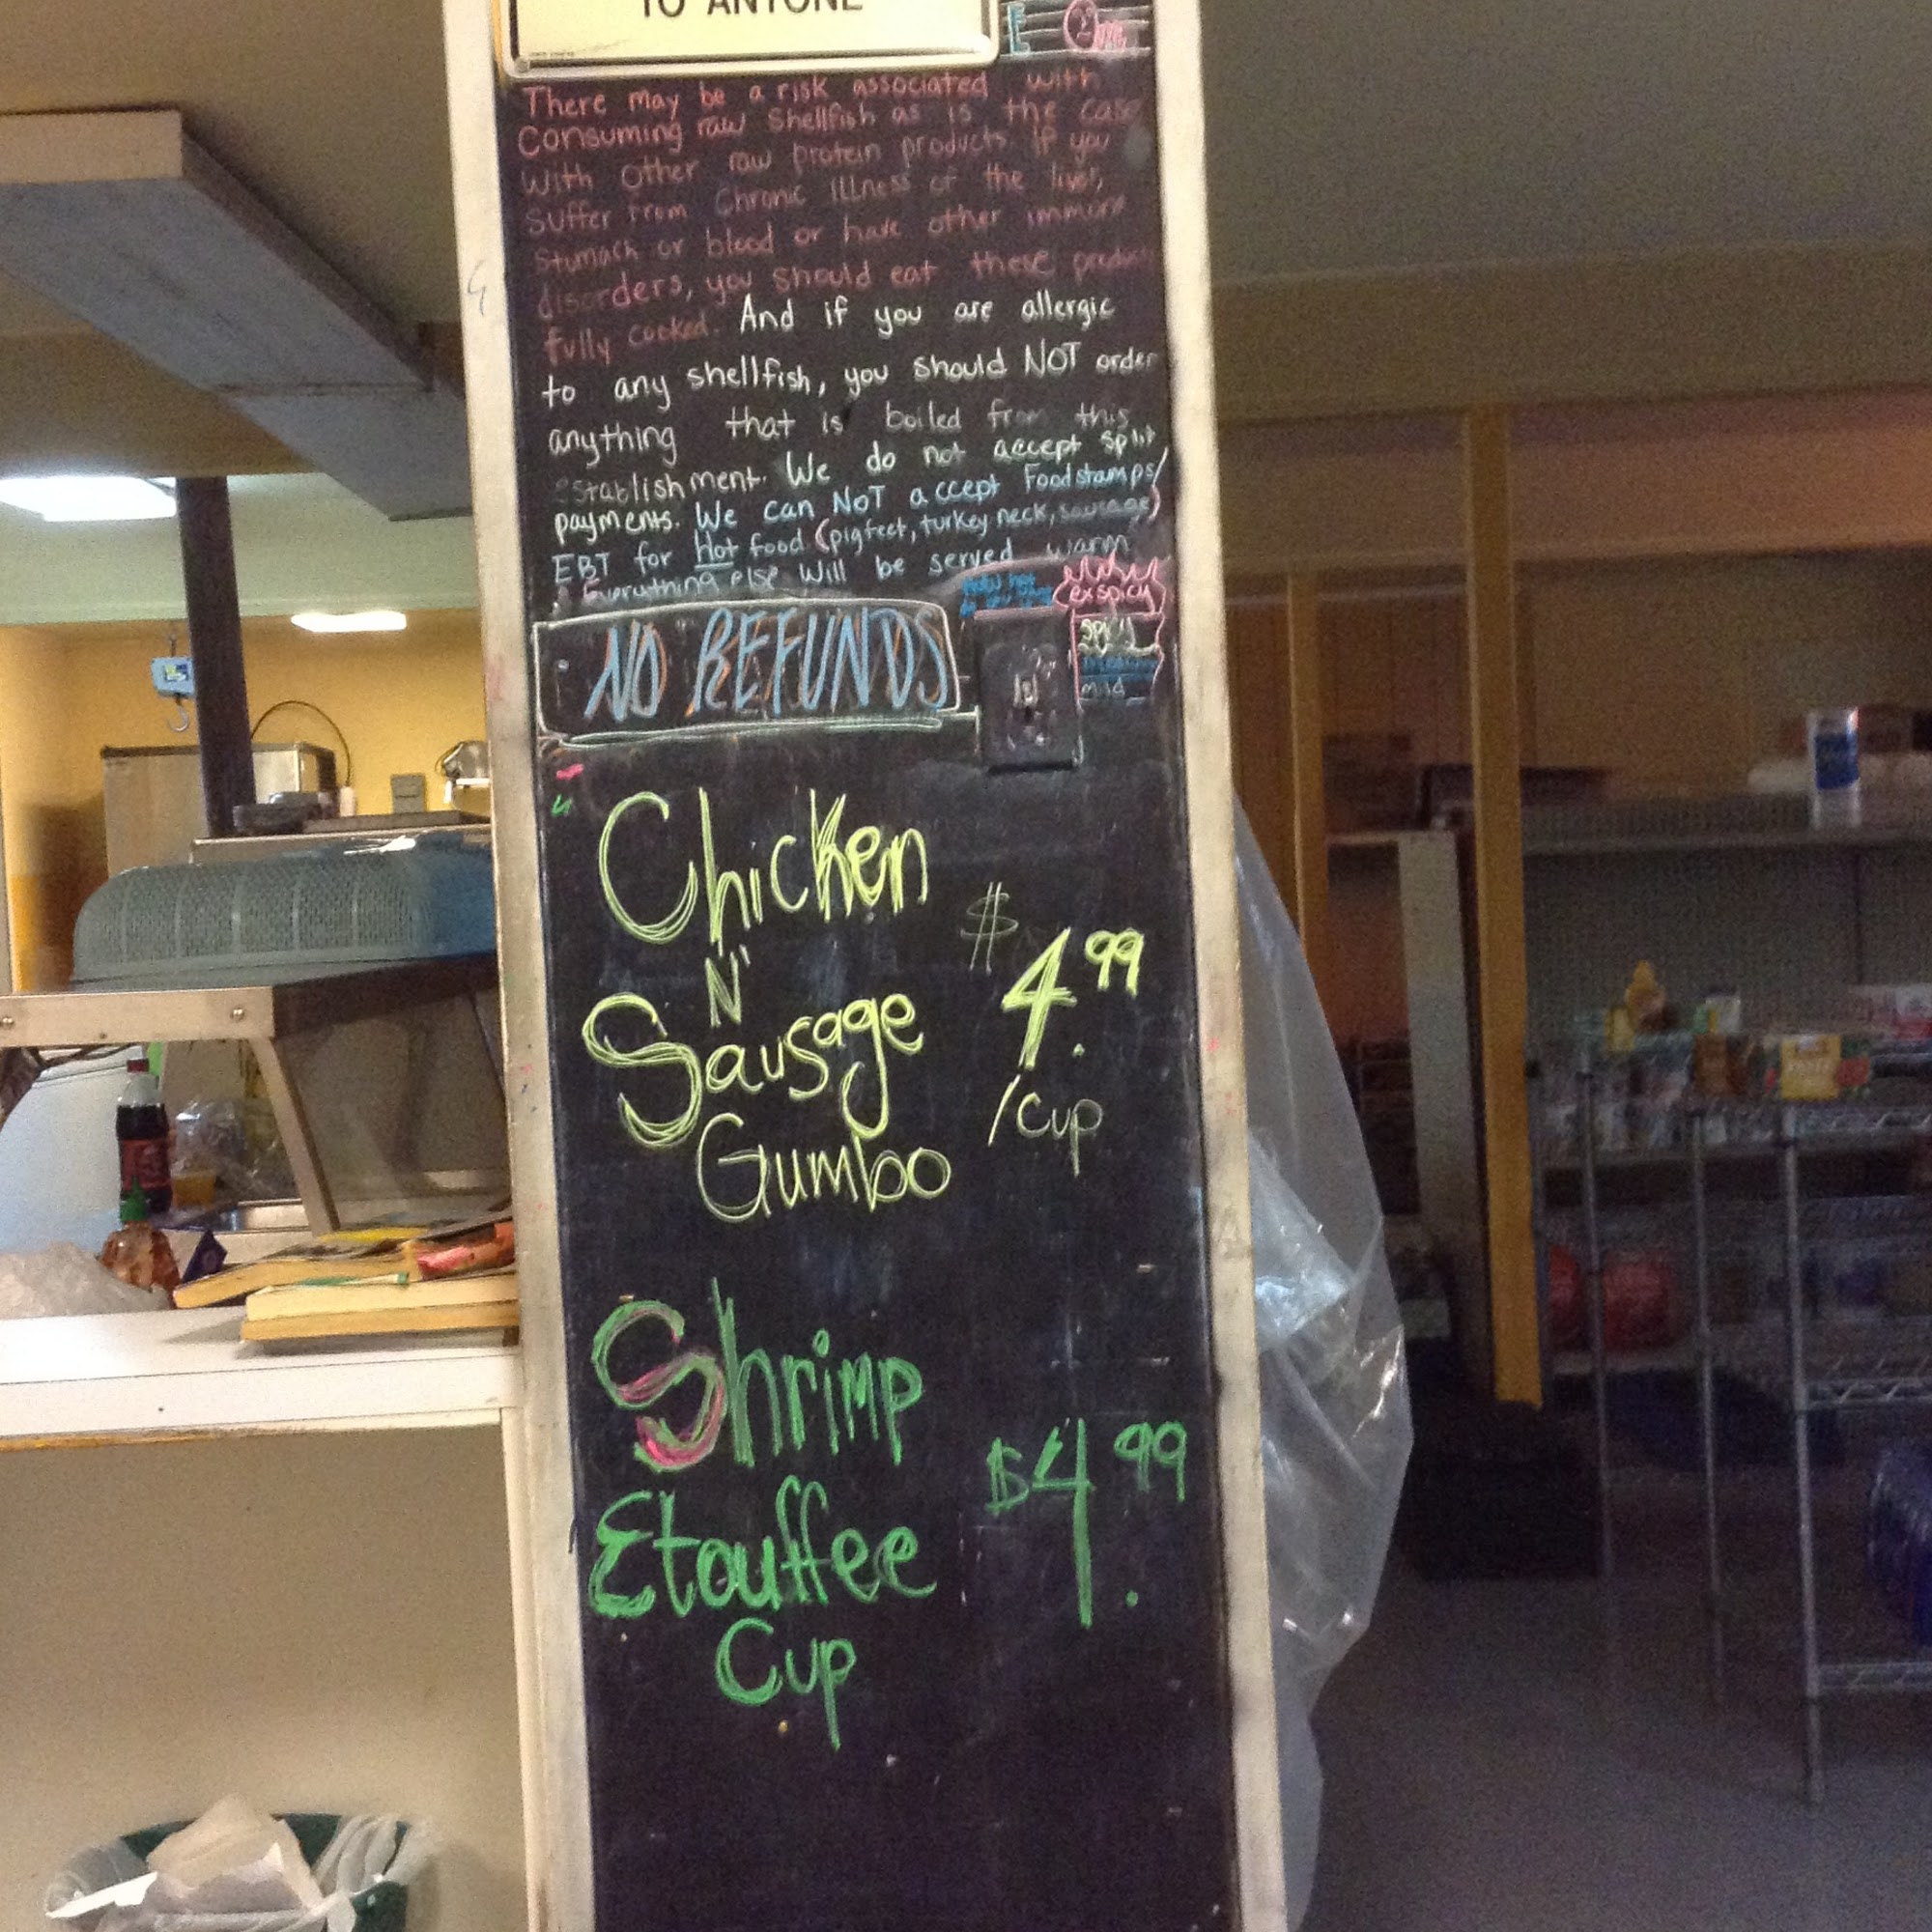 TO ANYONE
There may be a risk associated with
Consuming raw Shellfish as is the case
With other raw protein products. If you
Suffer from Chronic Illness of the liver,
Stumach or blood or have other immune
disorders, you should eat these product
fully cooked. And if you are allergic
to any shellfish, you should NOT order
anything that is boiled from this
establishment. We do not accept split
payments. We can NOT accept Foodstamps/
EBT for Hot food (pigfeet, turkey neck, sausage)
Everything else will be served warm
(exspicy)
NO REFUNDS
spicy
mild
Chicken
N'
Sausage
Gumbo
$4.99
/cup
Shrimp
Etouffee
Cup
$4.99